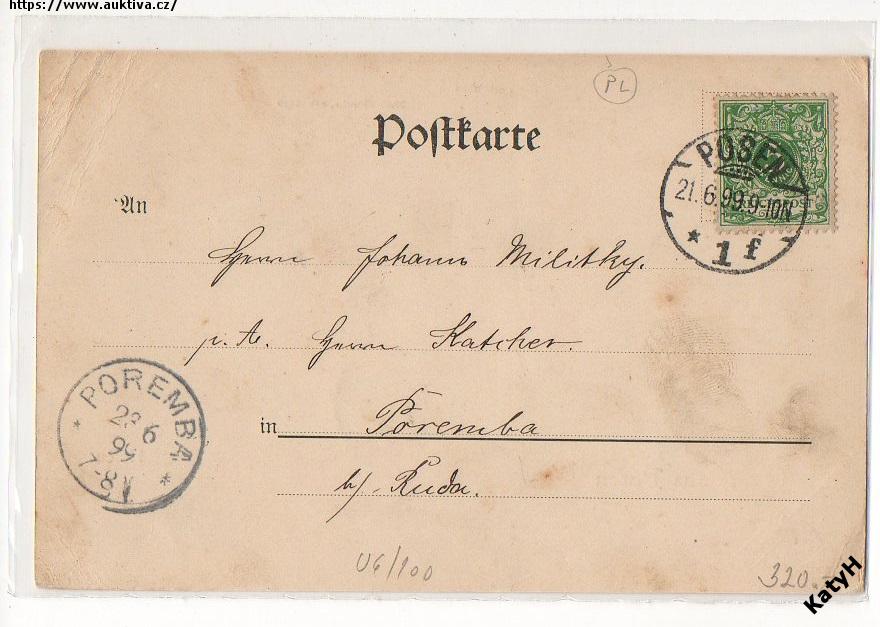 https://www.auktiva.cz/
PL
Postkarte
POSEN
21.6.99.9-10N
* 1 f
REICHSPOST
An
Herrn Johann Militky.
p. A. Herrn Katcher.
in Poremba
b/ Ruda.
* POREMBA *
23 6
99
7-8
UG/100
320.-
KatyH